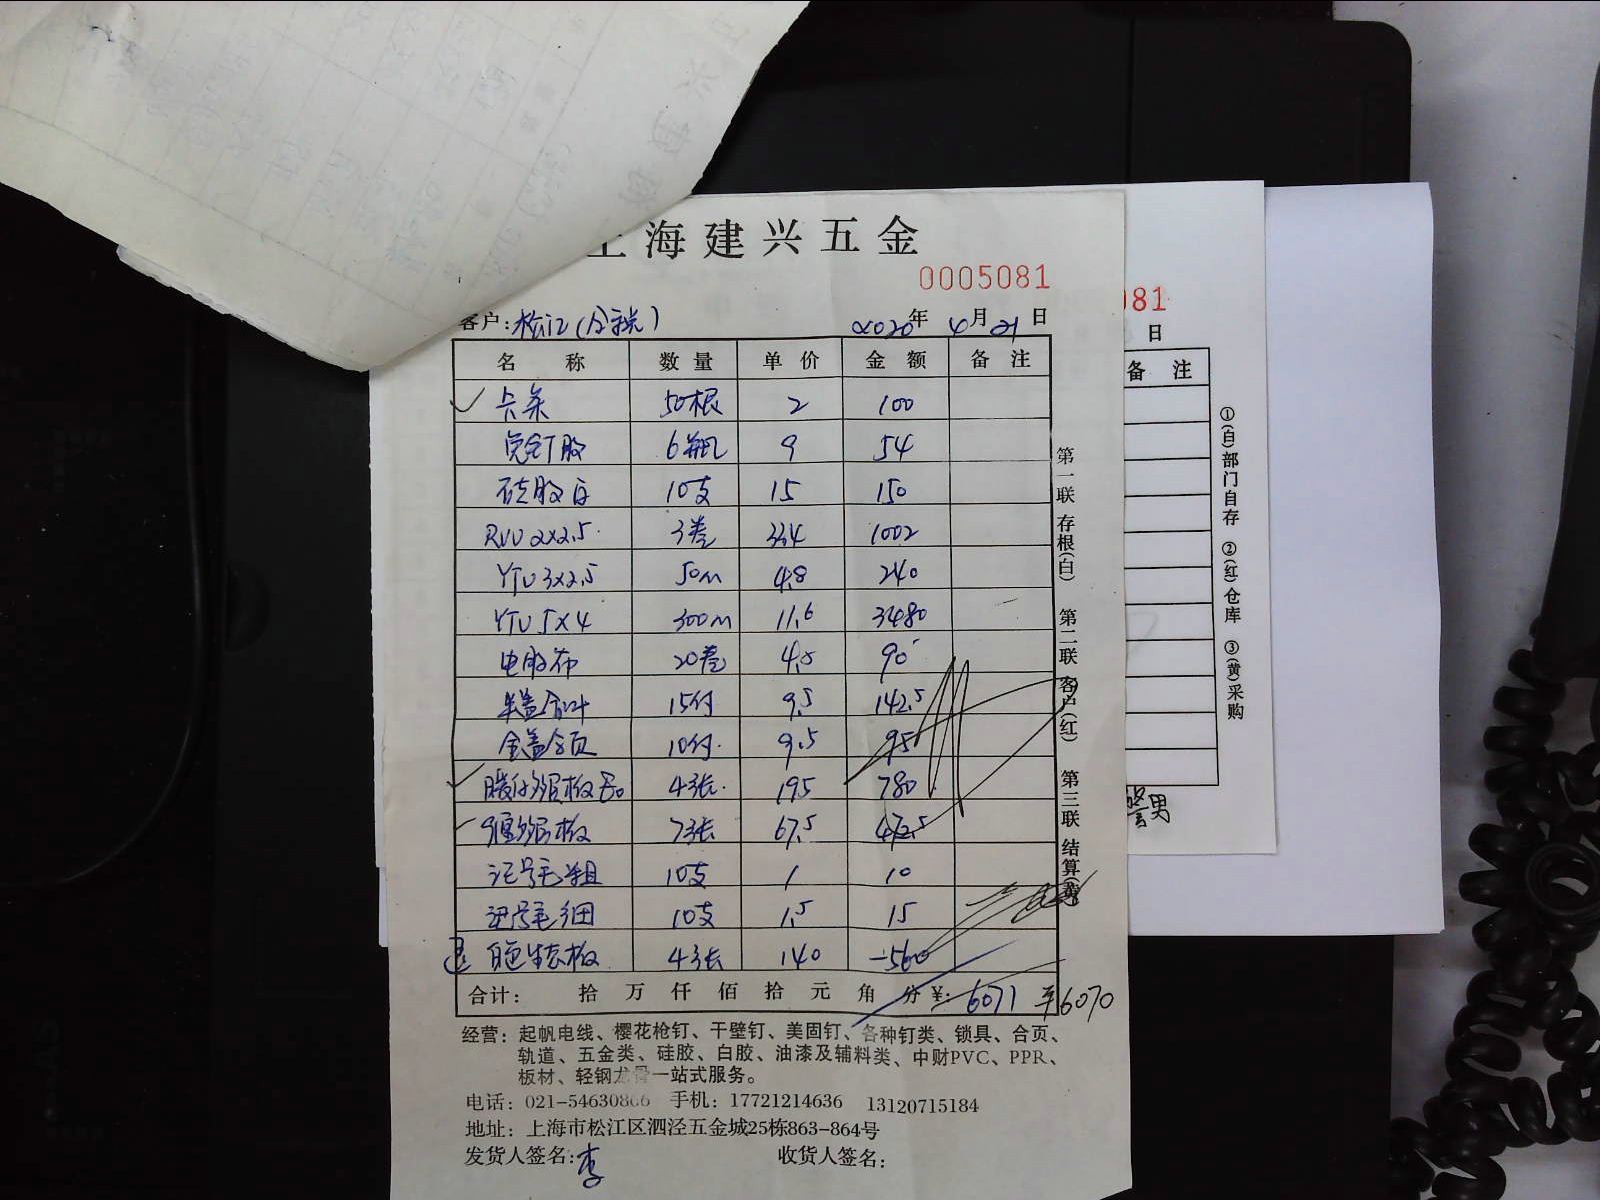 上海建兴五金
0005081
客户: 松江(含税) 2020年4月21日
名称 数量 单价 金额 备注
卡条 50根 2 100
免钉胶 6瓶 9 54
硅胶白 10支 15 150
RVV 2×2.5 3卷 334 1002
YTV 3×2.5 50m 4.8 240
YTV 5×4 300m 11.6 3480
电胶布 20卷 4.5 90
半盖合叶 15付 9.5 142.5
全盖合页 10付 9.5 95
板 4张 195 780
板 7张 67.5 472.5
记号毛粗 10支 1 10
记号毛细 10支 1.5 15
退 白色生态板 4张 140 -560
合计: 拾 万 仟 佰 拾 元 角 分 ¥: 6071 平6070
第一联 存根(白) 第二联 客户(红) 第三联 结算(黄)
经营: 起帆电线、樱花枪钉、干壁钉、美固钉、各种钉类、锁具、合页、
轨道、五金类、硅胶、白胶、油漆及辅料类、中财PVC、PPR、
板材、轻钢龙骨一站式服务。
电话: 021-54630866 手机: 17721214636 13120715184
地址: 上海市松江区泗泾五金城25栋863-864号
发货人签名: 李 收货人签名:
081
日
备注
①(白)部门自存 ②(红)仓库 ③(黄)采购
男